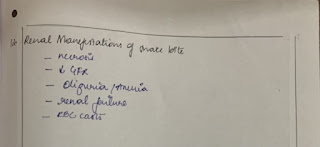 Renal Manifestations of snake bite
- necrosis
- ↓ GFR
- Oliguria/Anuria
- renal failure
- RBC casts